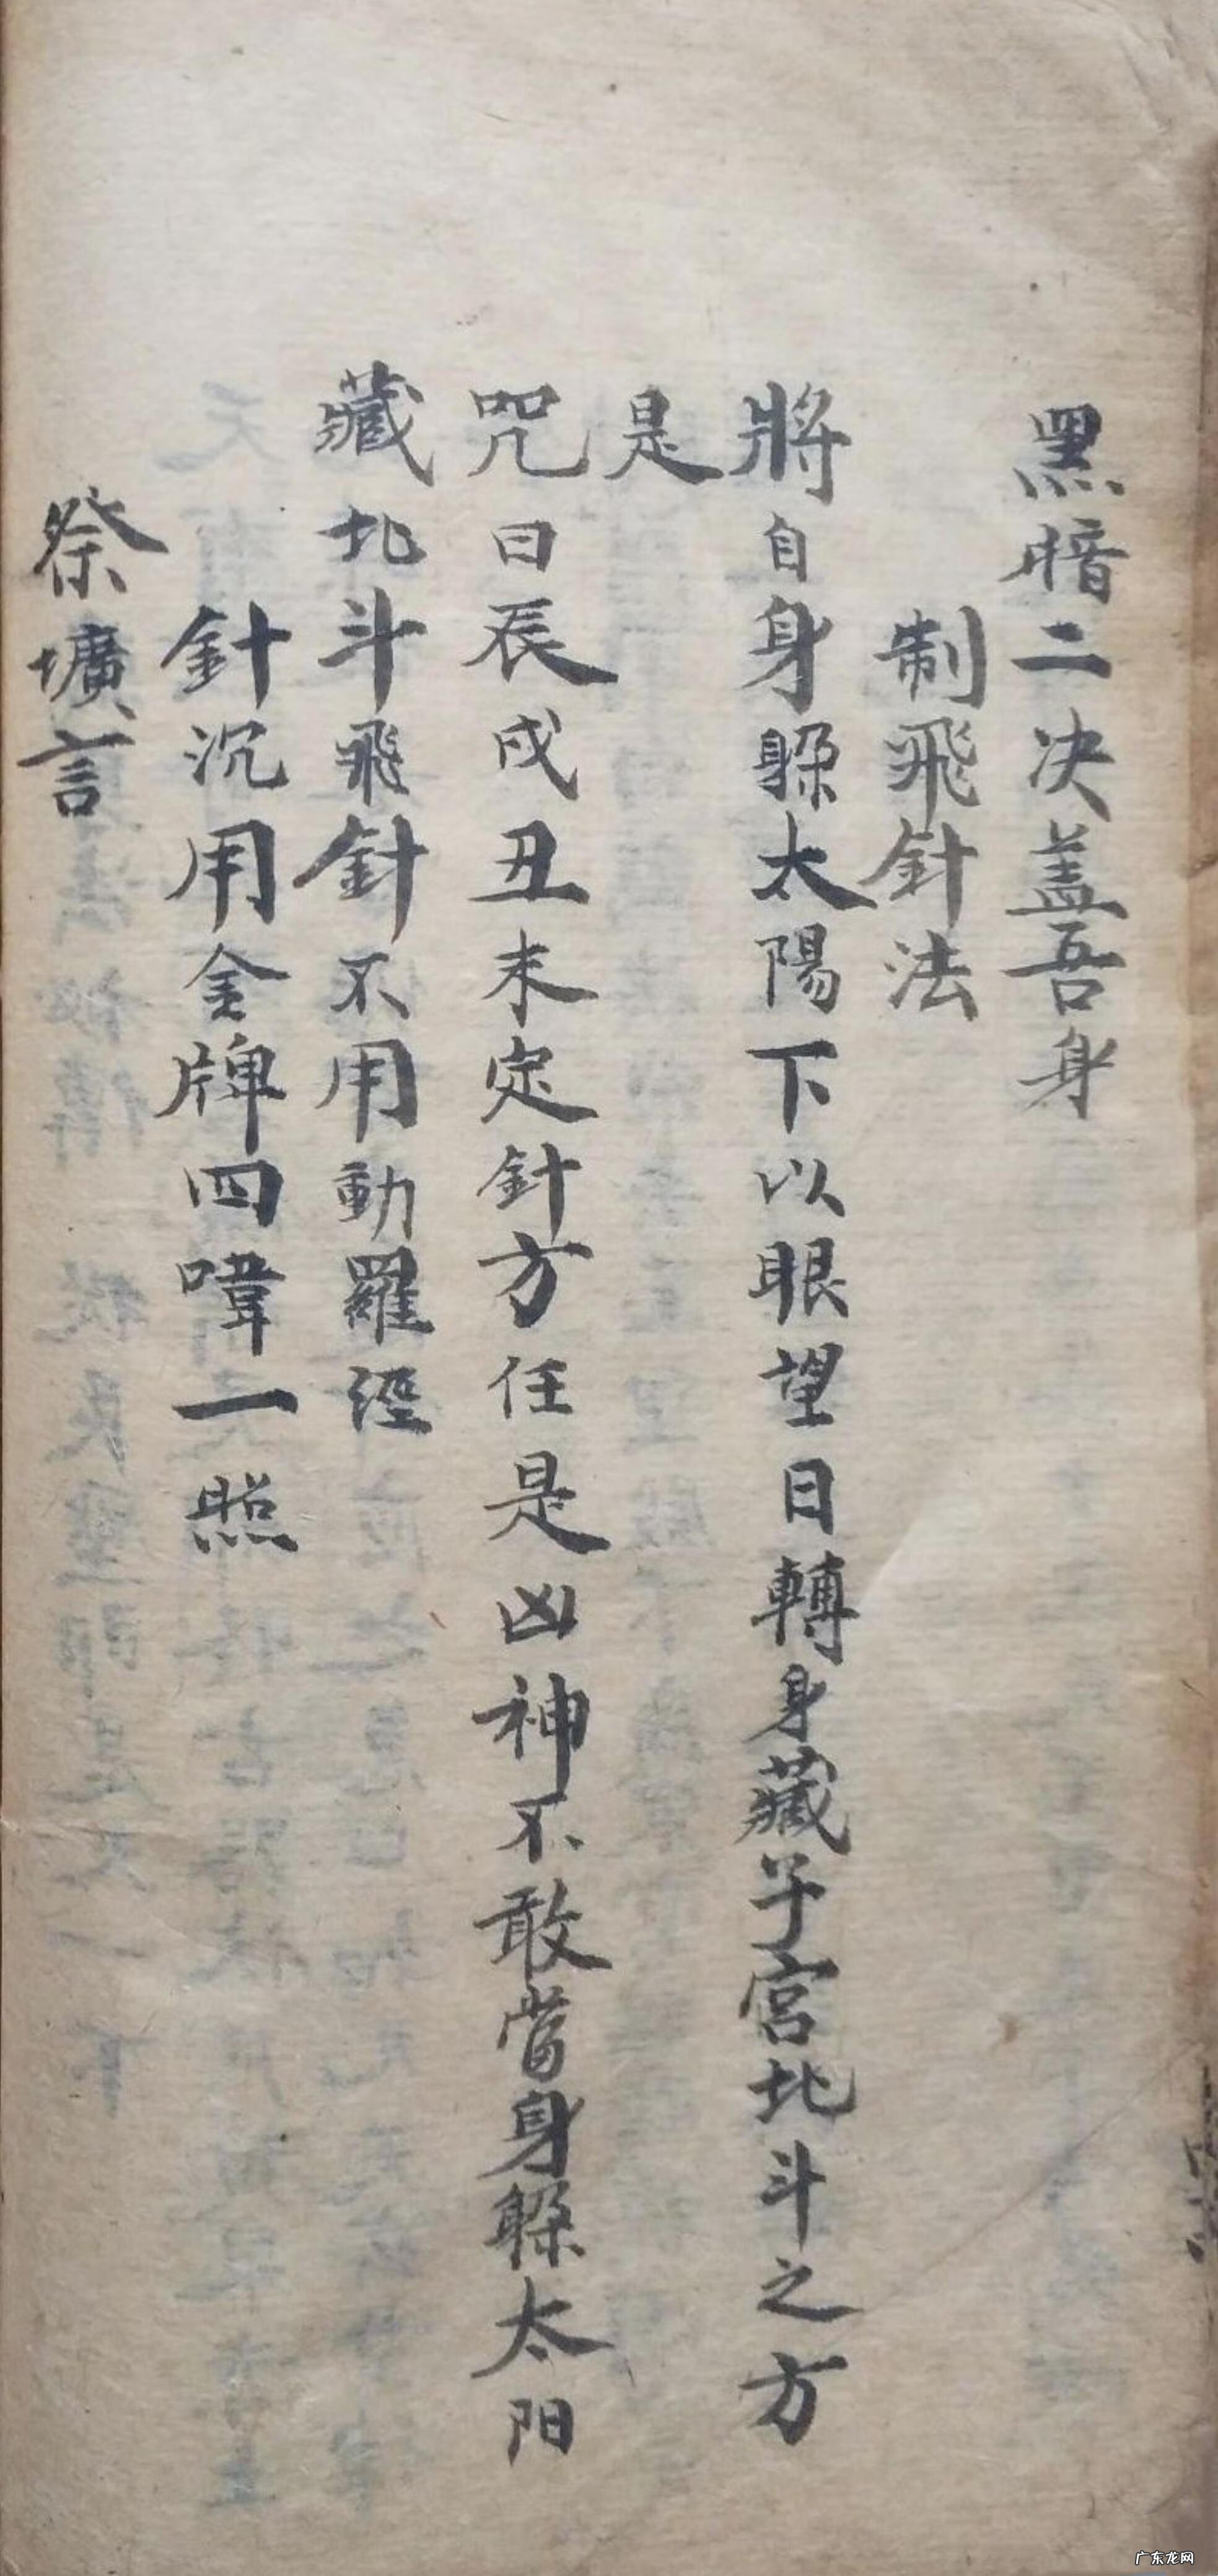 黑暗二决盖吾身
制飛針法
將自身躲太陽下以眼望日轉身藏子宮北斗之方
是
咒曰辰戌丑未定針方任是凶神不敢當身躲太阳
藏北斗飛針不用動羅經
針沉用金牌四㖞一照
祭壙言
广东龙网